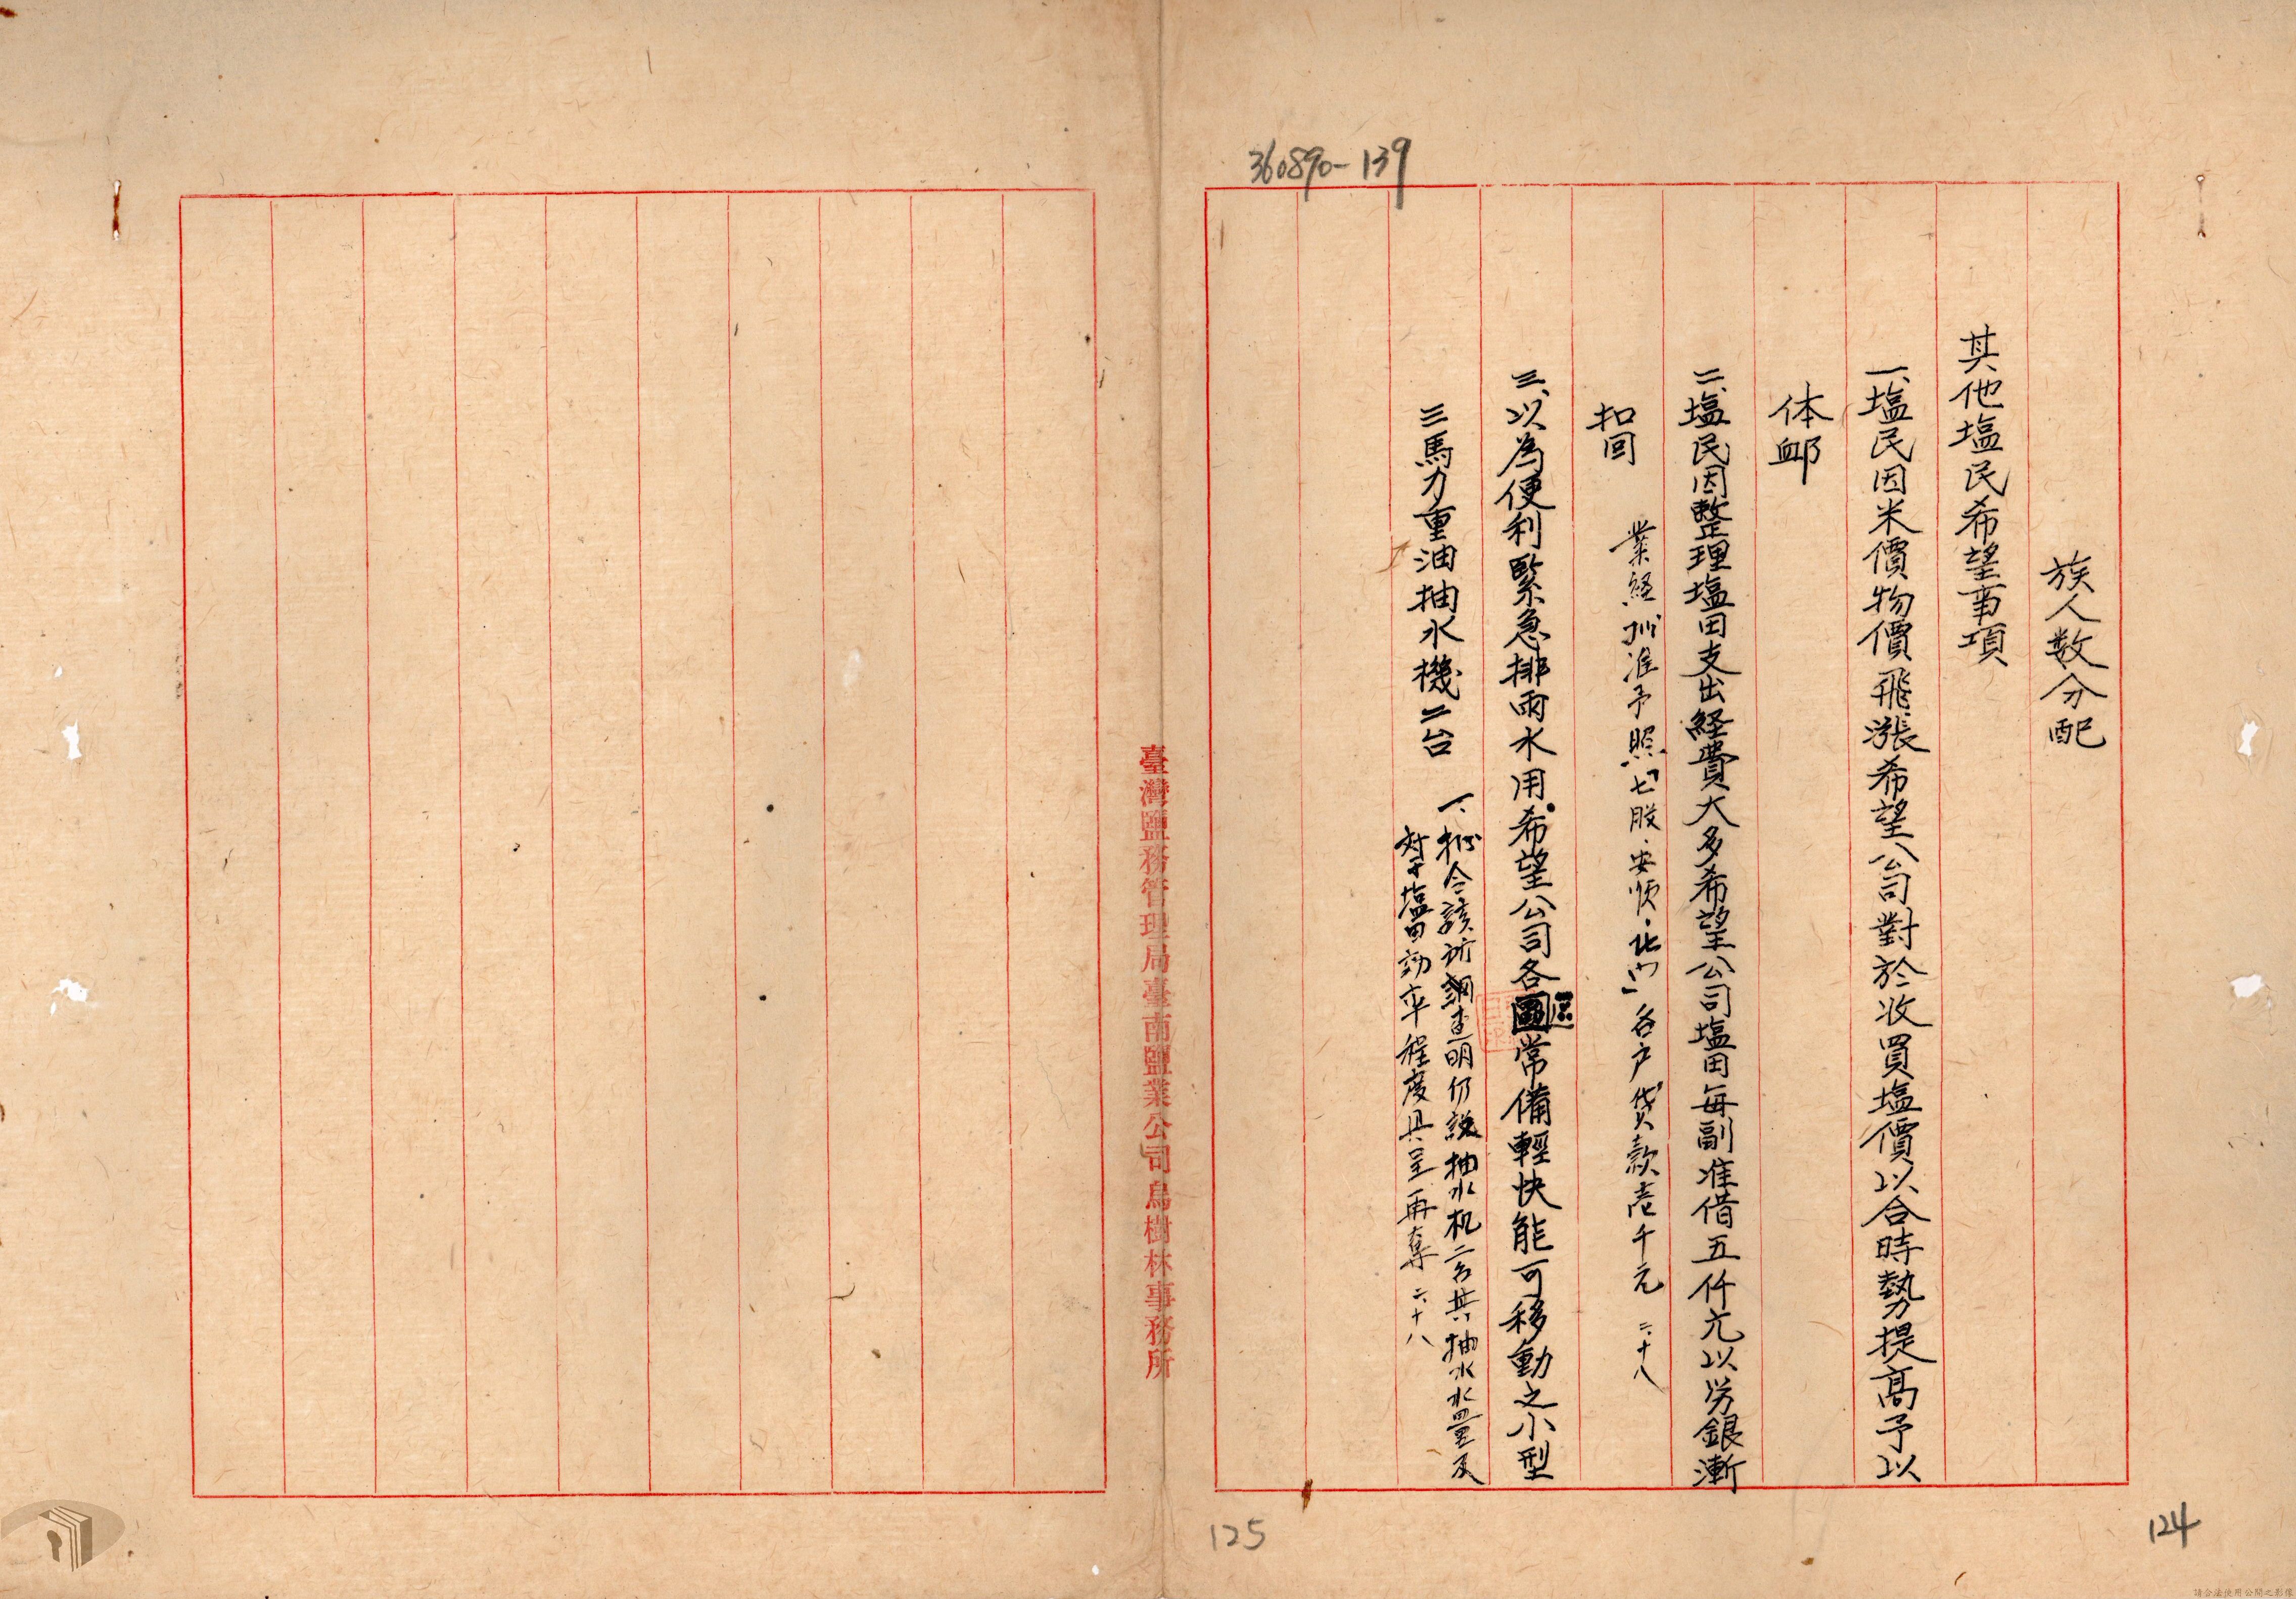 360890-139
族人数分配
其他塩民希望事項
一、塩民因米價物價飛漲希望公司對於收買塩價以合時勢提高予以
体卹
二、塩民因整理塩田支出経費大多希望公司塩田每副准借五仟元以労銀漸
扣回
業経批准予照「七股、安順、北门」各戶貸款壱千元 二、十八
三、以為便利緊急排雨水用希望公司各區常備輕快能可移動之小型
三馬力重油抽水機二台
一、批令該所調查明仍設抽水机二台其抽水水量及
対于塩田効率程度具呈再奪 二、十八
臺灣鹽務管理局臺南鹽業公司烏樹林事務所
125
124
請合法使用公開之影像